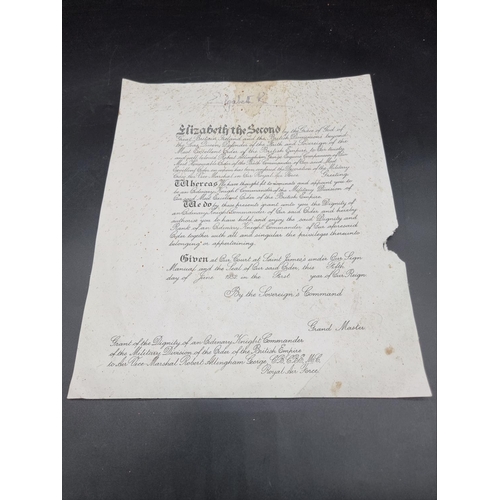 Elizabeth the Second by the Grace of God of
Great Britain, Ireland and the British Dominions beyond
the Seas Queen, Defender of the Faith and Sovereign of the
Most Excellent Order of the British Empire, to Our trusty
and well beloved Robert Allingham George Esquire Companion of Our
Most Honourable Order of the Bath Commander of Our said Most
Excellent Order on whom has been conferred the Decoration of the Military
Cross Air Vice Marshal in Our Royal Air Force Greeting
Whereas We have thought fit to nominate and appoint you to
be an Ordinary Knight Commander of the Military Division of
Our said Most Excellent Order of the British Empire
We do by these presents grant unto you the Dignity of
an Ordinary Knight Commander of Our said Order and hereby
authorise you to have hold and enjoy the said Dignity and
Rank of an Ordinary Knight Commander of Our aforesaid
Order together with all and singular the privileges thereunto
belonging or appertaining.
Given at Our Court at Saint James's under Our Sign
Manual and the Seal of Our said Order, this
day of June in the First year of Our Reign.
By the Sovereign's Command
Grand Master
Grant of the Dignity of an Ordinary Knight Commander
of the Military Division of the Order of the British Empire
to Air Vice-Marshal Robert Allingham George, C.B., C.B.E., M.C.
Royal Air Force